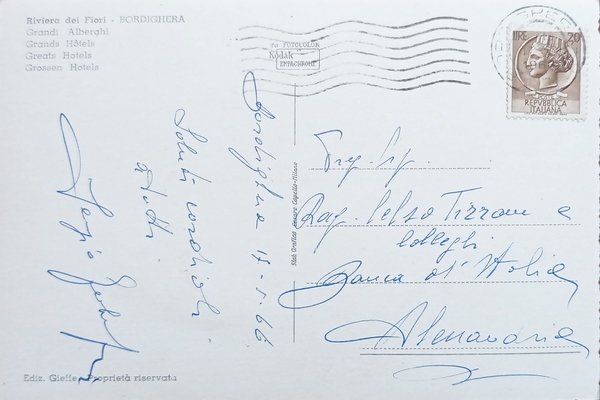 Riviera dei Fiori - BORDIGHERA
Grandi Alberghi
Grands Hôtels
Greats Hotels
Grossen Hotels
FOTOCOLOR
Kodak
EKTACHROME
LIRE 20
REPVBBLICA
ITALIANA
Bordighera 17-5-66
Saluti cordiali
a tutti
Sergio
Stab. Grafico Cesare Capello-Milano
Preg. Sig.
Rag. Celso Tizzoni e
colleghi
Banca d'Italia
Alessandria
Ediz. Gieffe - Proprietà riservata